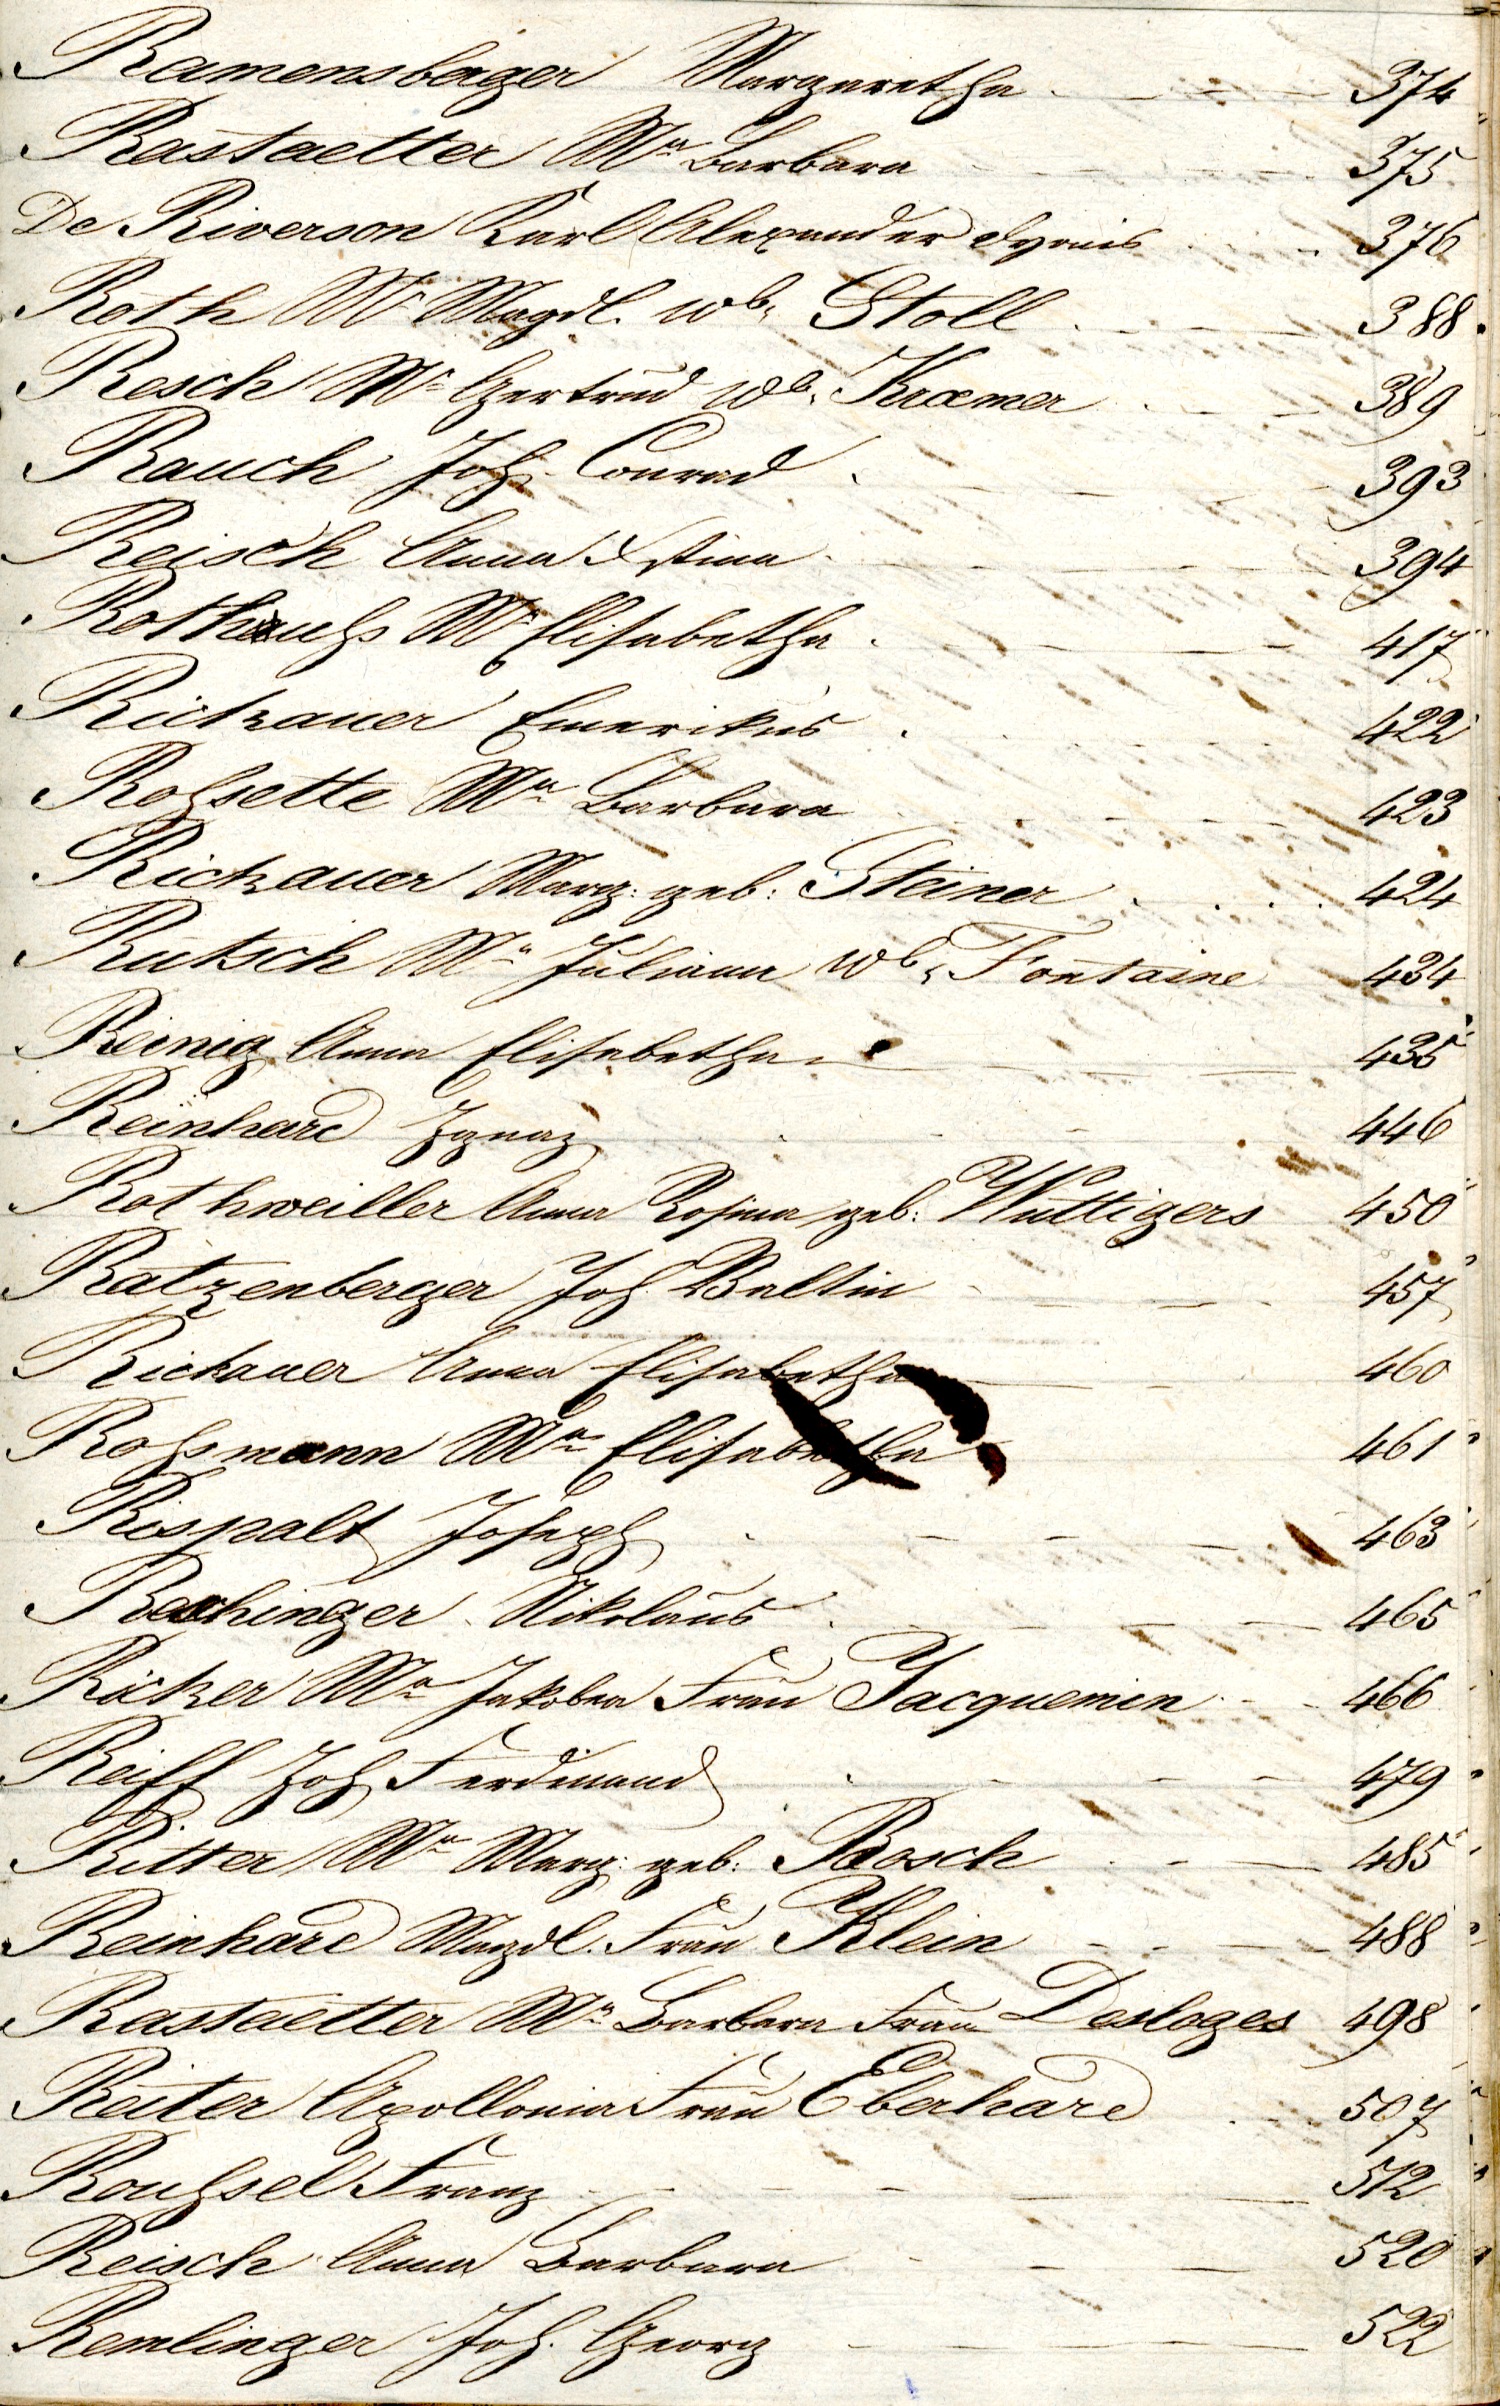 Ramensberger Margaretha 374
Rastaetter Mª Barbara 375
De Riverson Karl Alexander 376
Roth Mª Magdl. wb. Stoll 388.
Resch Mª Gertrud Wb. Kraemer 389
Rauch Joh. Conrad 393
Reisch Anna 394
Mª Elisabetha 417
Rickauer Emerikus 422
Roßette Mª Barbara 423
Rickauer Marg: geb: Steiner 424
Rutsch Mª Juliana wb. Fontaine 434
Reinig Anna Elisabetha 435
Reinhard Ignaz 446
Rothweiller Anna Rosina geb: Wuttigers 450
Ratzenberger Joh. Baltin 457
Rickauer Anna Elisabetha 460
Roßmann Mª Elisabetha 461
Rispalt Joseph 463
Rechinger Nikolaus 465
Ricker Mª Jakobea Frau Jacquemin 466
Reiff Joh. Ferdinand 479
Ritter Mª Marg: geb: Bosch 485
Reinhard Magdl. Frau Klein 488
Rastaetter Mª Barbara Frau Desloges 498
Reiter Apollonia Frau Eberhard 507
Roußel Franz 512
Reisch Anna Barbara 520
Remlinger Joh. Georg 522